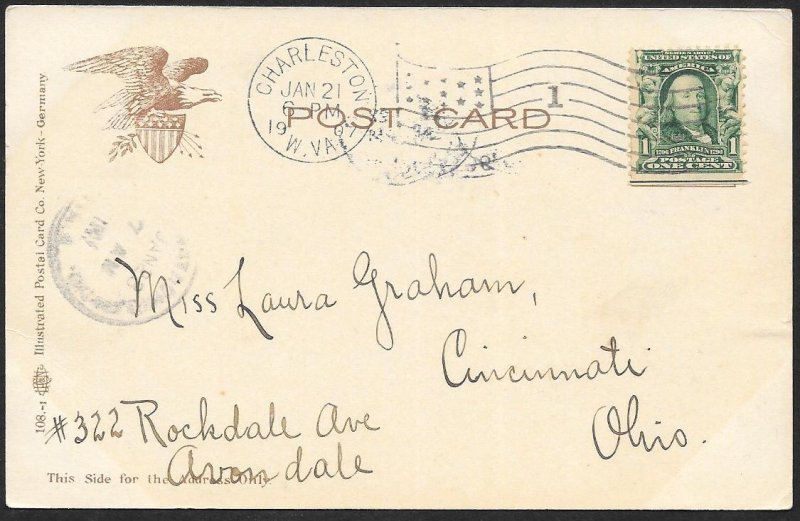 CHARLESTON
JAN 21
6 PM
19 07
W.VA.
POST CARD
1
SERIES 1902
UNITED STATES OF
AMERICA
1 1790 FRANKLIN 1790 1
POSTAGE
ONE CENT
108.-1 Illustrated Postal Card Co. New York - Germany
7 AM
JAN
Miss Laura Graham,
Cincinnati
Ohio.
#322 Rockdale Ave
Avondale
This Side for the Address Only